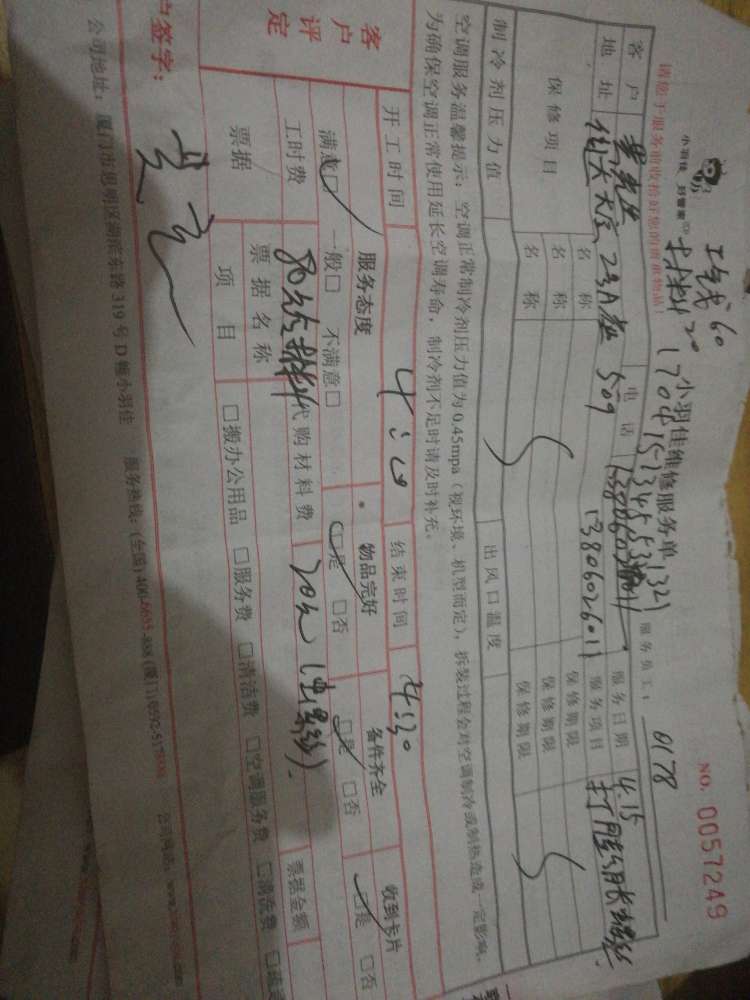 工钱60
材料20
小羽佳 好管家
小羽佳维修服务单
NO. 0057249
请您于服务前收拾好您的贵重物品!
服务员工: 0178
客户 电话 服务日期 4.15
13806026011
地址 大室 2号A栋 509 服务项目 打胶 膨胀螺丝
保修项目 名称 保修期限
名称 保修期限
名称 保修期限
制冷剂压力值 出风口温度
空调服务温馨提示:空调正常制冷剂压力值为0.45mpa(视环境、机型而定),拆装过程会对空调制冷或制热造成一定影响,
为确保空调正常使用延长空调寿命,制冷剂不足时请及时补充。
开工时间 4:00 结束时间 4:30
客户评定 服务态度 物品完好 备件齐全 收到卡片
满意□ 一般□ 不满意□ □是 □否 □是 □否 □是 □否
工时费 80元含材料 代购材料费 20元
票据 票据名称 票据金额
项目 □搬办公用品 □服务费 □清洁费 □空调服务费 □清洗费
户签字:
公司地址:厦门市思明区湖滨东路319号D幢小羽佳 服务热线:(全国)400-6633-888